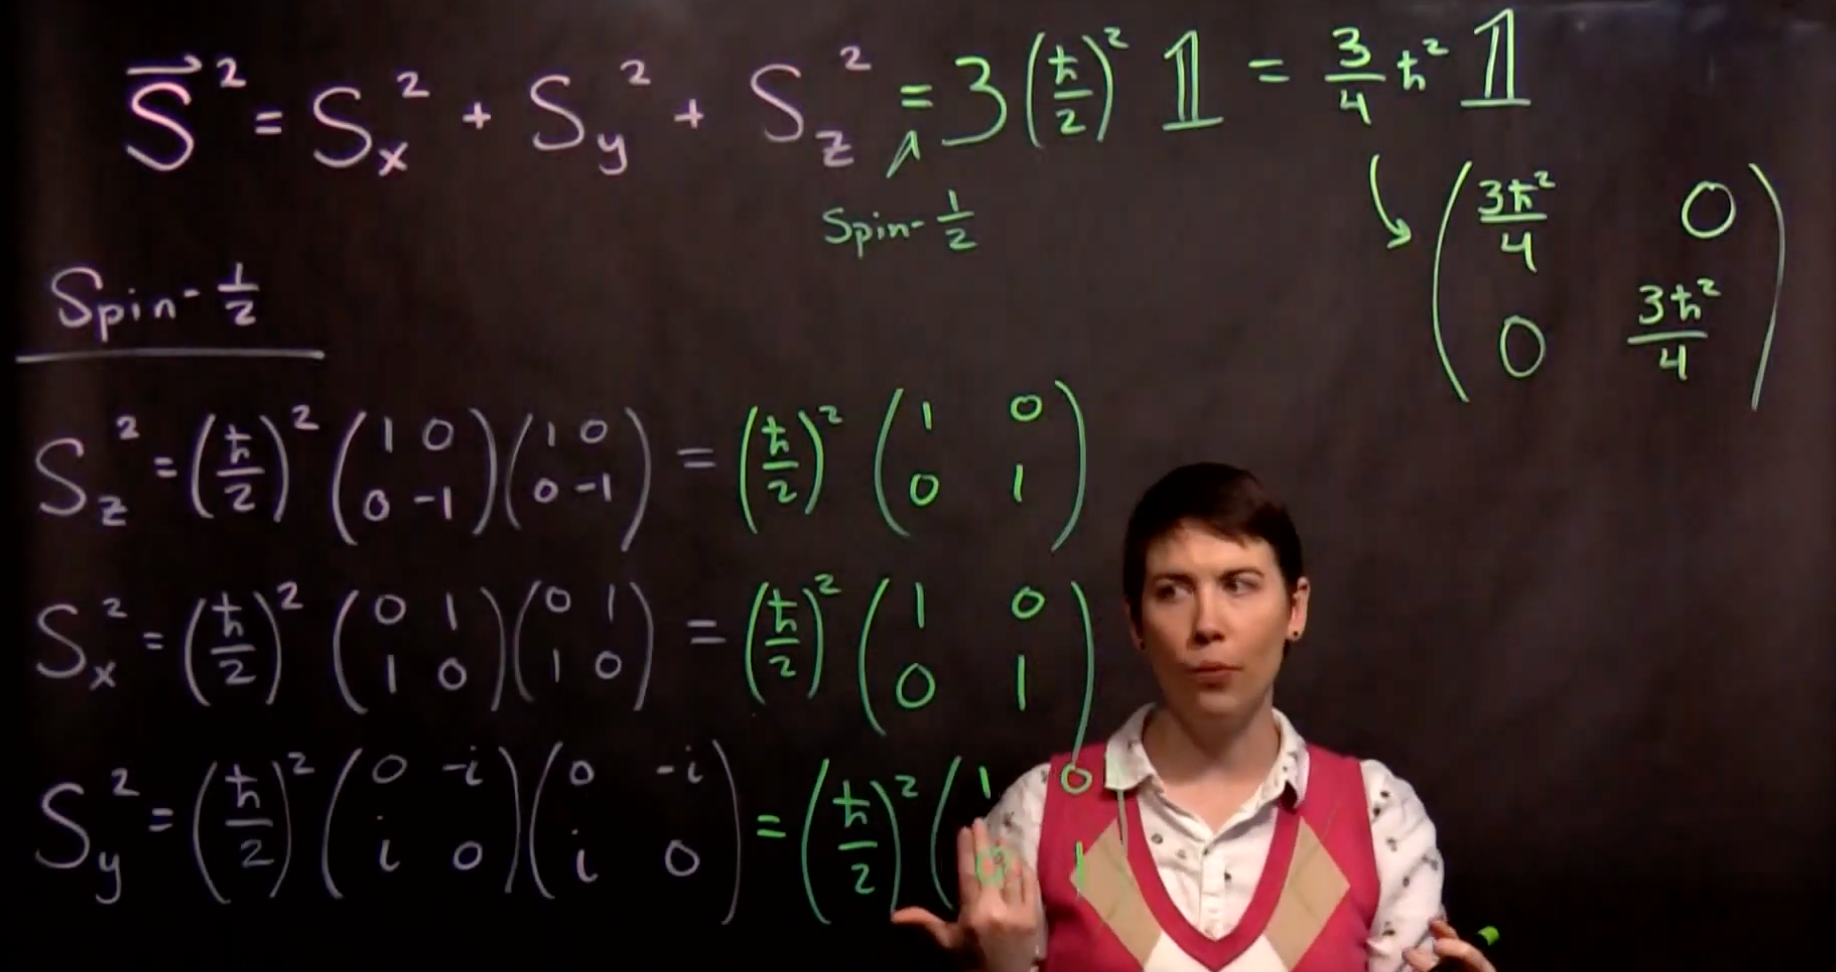 S⃗² = Sₓ² + S_y² + S_z² = 3(ħ/2)² 𝟙 = 3/4 ħ² 𝟙
Spin-1/2
(3ħ²/4 0
0 3ħ²/4)
Spin-1/2
S_z² = (ħ/2)² (1 0 0 -1)(1 0 0 -1) = (ħ/2)² (1 0 0 1)
Sₓ² = (ħ/2)² (0 1 1 0)(0 1 1 0) = (ħ/2)² (1 0 0 1)
S_y² = (ħ/2)² (0 -i i 0)(0 -i i 0) = (ħ/2)² (1 0 0 1)